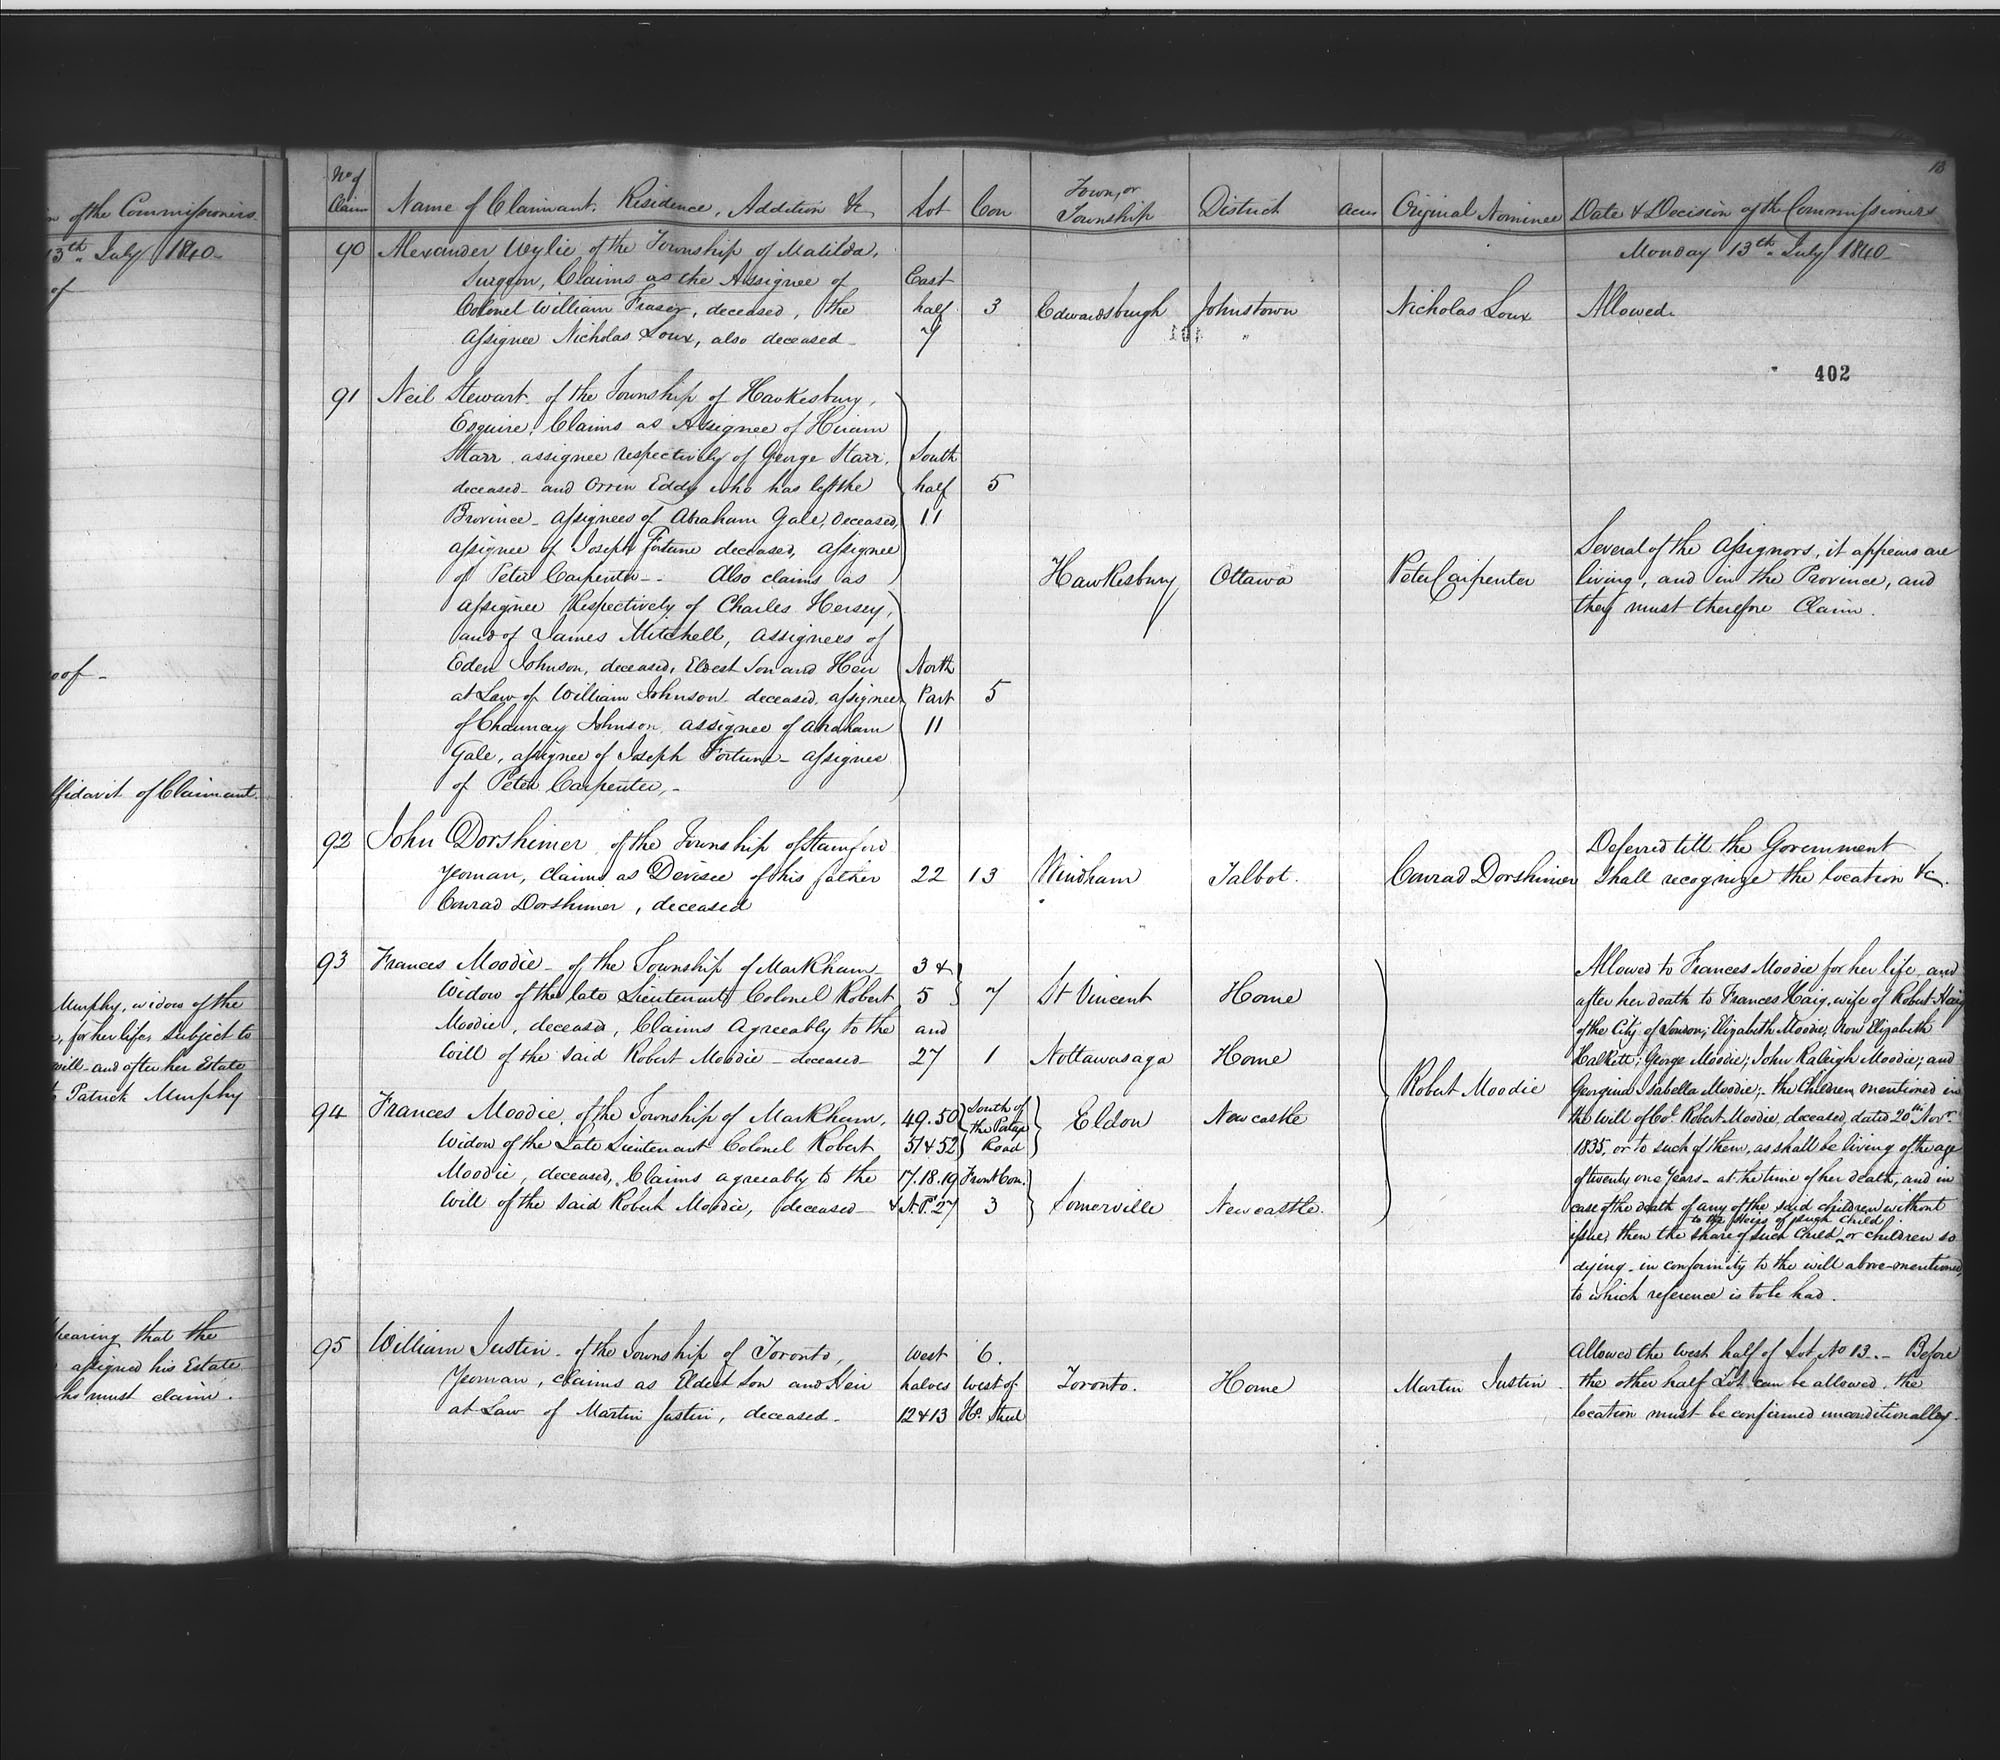 n of the Commissioners.
13th July 1840.
of
oof
ffidavit of Claimant.
Murphy, widow of the
, for her life, subject to
will - and after her Estate
Patrick Murphy
ppearing that the
assigned his Estate
he must claim.
13
No of Claim
Name of Claimant. Residence, Addition &c
Lot
Con
Town, or Township
District
acres
Original Nominee
Date & Decision of the Commissioners
Monday 13th July 1840.
90
Alexander Wylie of the Township of Matilda,
Surgeon, Claims as the Assignee of
Colonel William Fraser, deceased, the
Assignee Nicholas Loux, also deceased.
East
half
7
3
Edwardsburgh
Johnstown
Nicholas Loux
Allowed.
402
91
Neil Stewart of the Township of Hawkesbury,
Esquire, Claims as Assignee of Hiram
Starr, assignee respectively of George Starr,
deceased - and Orren Eddy who has left the
Province - Assignees of Abraham Gale, deceased,
assignee of Joseph Fortune deceased, assignee
of Peter Carpenter -. Also claims as
assignee Respectively of Charles Hersey,
and of James Mitchell, assignees of
Eden Johnson, deceased, Eldest Son and Heir
at Law of William Johnson deceased, assignee
of Chauncey Johnson, assignee of Abraham
Gale, assignee of Joseph Fortune - assignee
of Peter Carpenter, -
South
half
11
5
North
Part
11
5
Hawkesbury
Ottawa
Peter Carpenter
Several of the Assignors, it appears are
living, and in the Province, and
they must therefore Claim.
92
John Dorshimer, of the Township of Stamford
Yeoman, claims as Devisee of his father
Conrad Dorshimer, deceased
22
13
Windham
Talbot.
Conrad Dorshimer
Deferred till the Government
Shall recognize the location &c.
93
Frances Moodie - of the Township of Markham
Widow of the late Lieutenant Colonel Robert
Moodie, deceased, Claims Agreeably to the
Will of the said Robert Moodie - deceased
3 &
5
and
27
7
1
St Vincent
Nottawasaga
Home
Home
94
Frances Moodie, of the Township of Markham,
Widow of the Late Lieutenant Colonel Robert
Moodie, deceased, Claims agreeably to the
Will of the said Robert Moodie, deceased -
49. 50
51 & 52
17. 18. 19
& N. Pt. 27
South of
the Portage
Road
Front Con.
3
Eldon
Somerville
Newcastle
Newcastle.
Robert Moodie
Allowed to Frances Moodie for her life and
after her death to Frances Haig, wife of Robert Haig
of the City of London; Elizabeth Moodie, now Elizabeth
Halkett; George Moodie; John Raleigh Moodie; and
Georgina Isabella Moodie; - the Children mentioned in
the Will of Col. Robert Moodie, deceased, dated 20th Novr.
1835, or to such of them, as shall be living of the age
of twenty one Years - at the time of her death, and in
case of the death of any of the said children without
to the Heirs of such child
issue, then the share of such Child or children so
dying - in conformity to the will above-mentioned,
to which reference is to be had.
95
William Justin - of the Township of Toronto,
Yeoman, claims as Eldest Son and Heir
at Law of Martin Justin, deceased.
West
halves
12 & 13
6.
West of
Ho. Street
Toronto.
Home
Martin Justin
Allowed the West half of Lot No 13. - Before
the other half Lot can be allowed, the
location must be confirmed unconditionally.